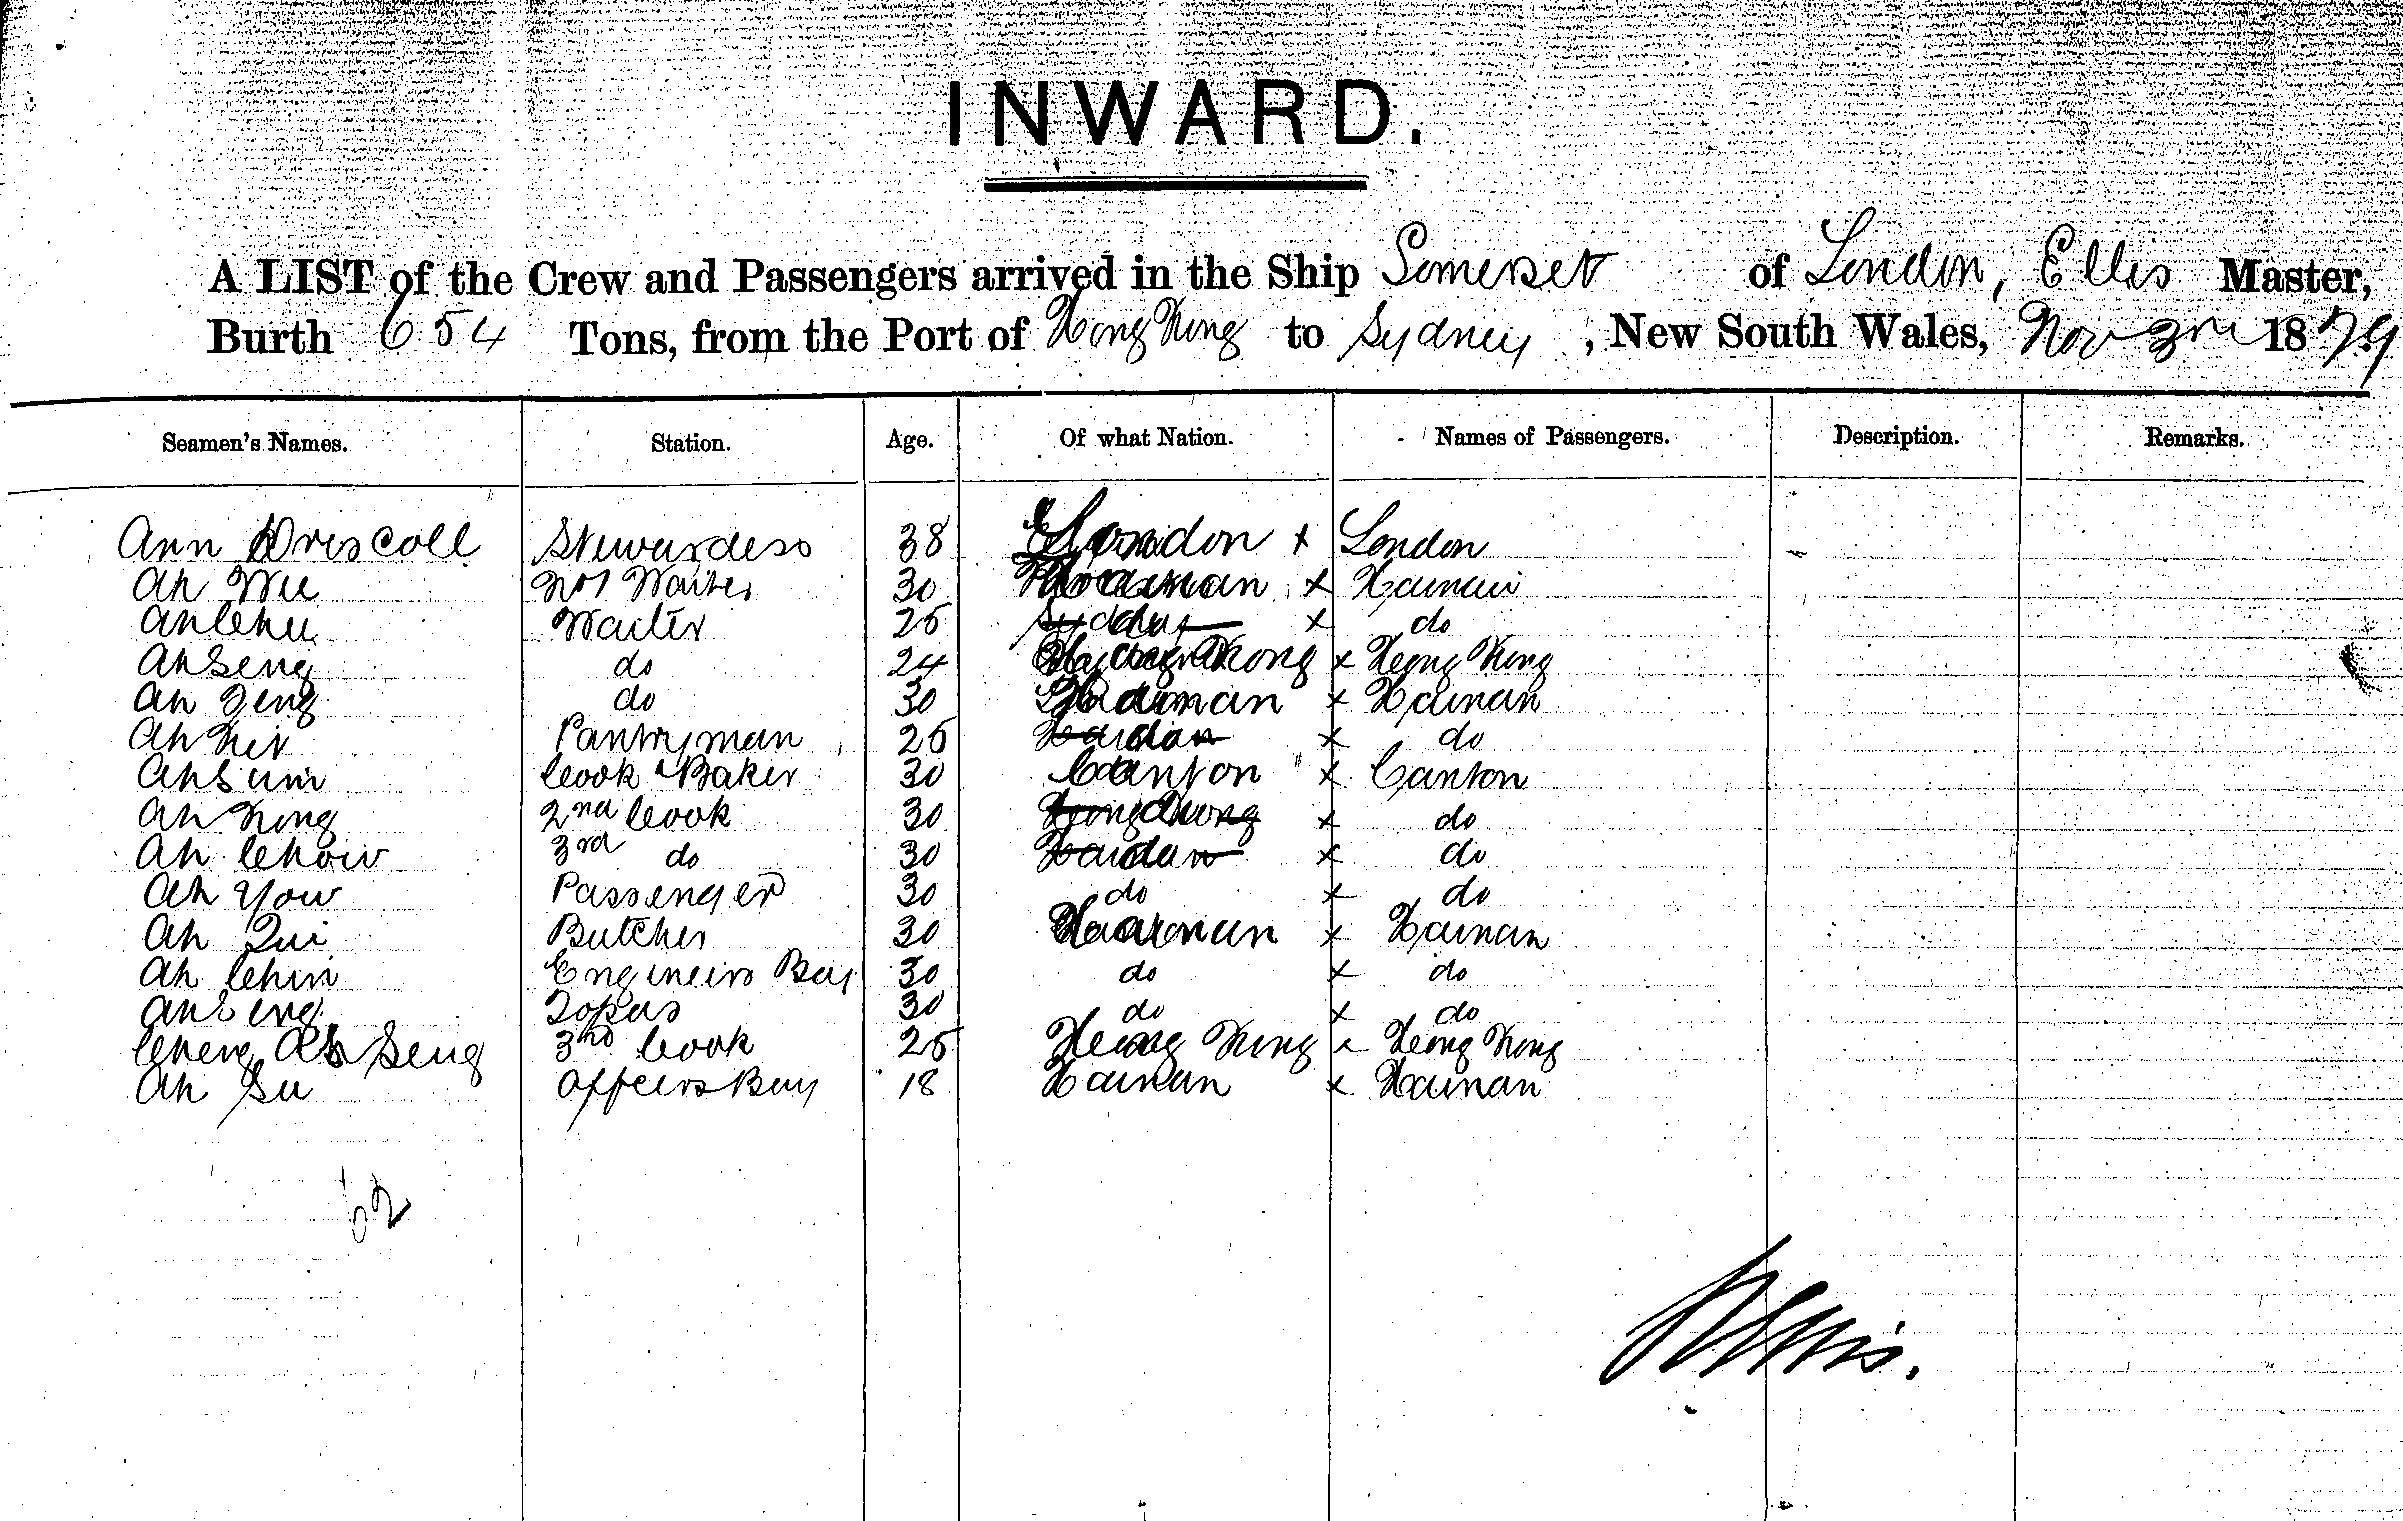 INWARD.
A LIST of the Crew and Passengers arrived in the Ship Somerset of London, Ellis Master,
Burth 654 Tons, from the Port of Hong Kong to Sydney, New South Wales, Nov 3rd 1879
Seamen's Names. Station. Age. Of what Nation. Names of Passengers. Description. Remarks.
Ann Driscoll Stewardess 38 London x London
Ah Wee No 1 Waiter 30 Hainan x Hainan
Ah Chu Waiter 25 do x do
Ah Seng do 24 Hong Kong x Hong Kong
Ah Zeng do 30 Hainan x Hainan
Ah Kit Pantryman 25 do x do
Ah Sum Cook & Baker 30 Canton x Canton
Ah Kong 2nd Cook 30 do x do
Ah Chow 3rd do 30 do x do
Ah You Passenger 30 do x do
Ah Qui Butcher 30 Hainan x Hainan
Ah Chin Engineers Boy 30 do x do
Ah Seng Topas 30 do x do
Cheng Ah Seng 3rd Cook 25 Hong Kong x Hong Kong
Ah Su Officers Boy 18 Hainan x Hainan
62
Ellis.